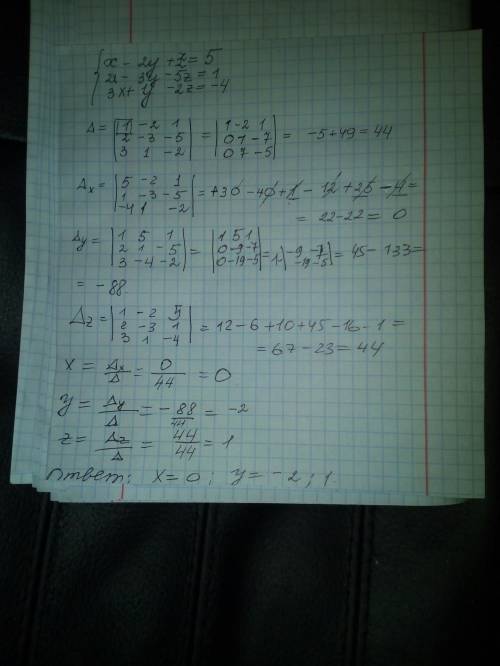 x - 2y + z = 5
2x - 3y - 5z = 1
3x + y - 2z = -4
Δ = |1 -2 1; 2 -3 -5; 3 1 -2| = |1 -2 1; 0 1 -7; 0 7 -5| = -5 + 49 = 44
Δx = |5 -2 1; 1 -3 -5; -4 1 -2| = +30 - 40 + 1 - 12 + 25 - 4 =
= 22 - 22 = 0
Δy = |1 5 1; 2 1 -5; 3 -4 -2| = |1 5 1; 0 -9 -7; 0 -19 -5| = 1·|-9 -7; -19 -5| = 45 - 133 =
= -88
Δz = |1 -2 5; 2 -3 1; 3 1 -4| = 12 - 6 + 10 + 45 - 16 - 1 =
= 67 - 23 = 44
x = Δx/Δ = 0/44 = 0
y = Δy/Δ = -88/44 = -2
z = Δz/Δ = 44/44 = 1
Ответ: x = 0; y = -2; 1.